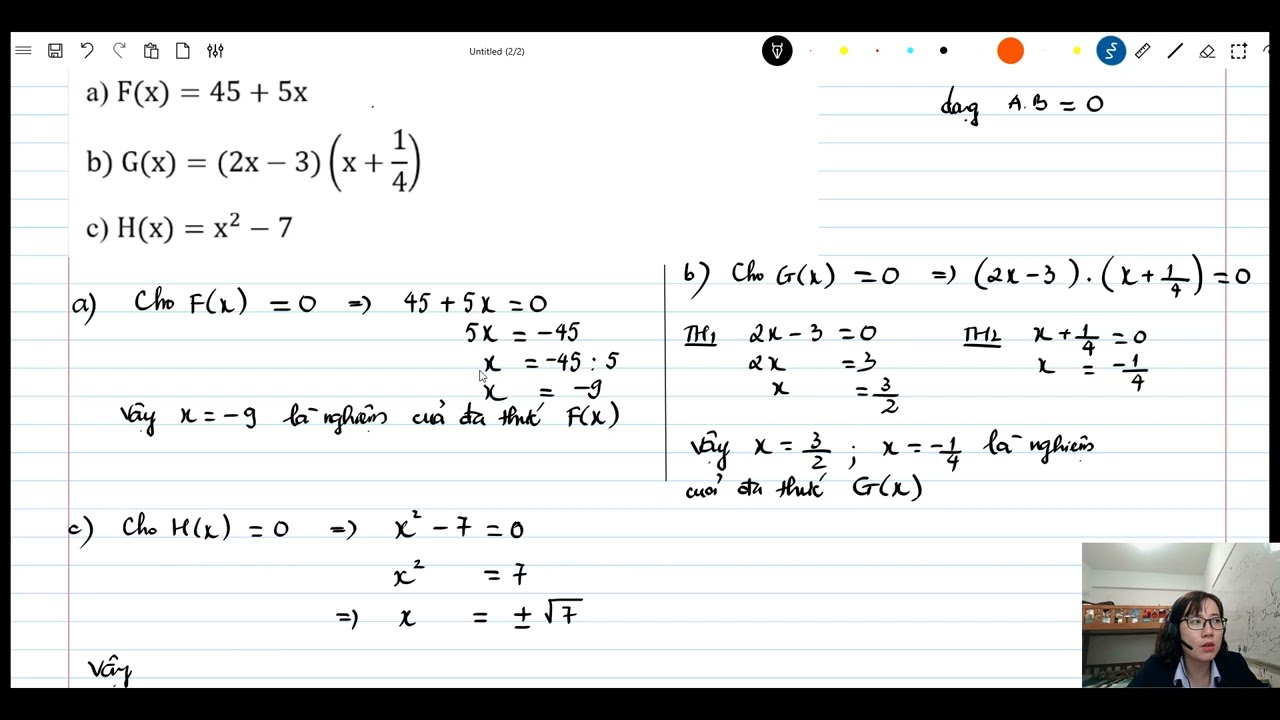 Untitled (2/2)
a) F(x) = 45 + 5x
dạng A.B = 0
b) G(x) = (2x − 3)(x + 1/4)
c) H(x) = x² − 7
a) Cho F(x) = 0 => 45 + 5x = 0
5x = −45
x = −45 : 5
x = −9
Vậy x = −9 là nghiệm của đa thức F(x)
b) Cho G(x) = 0 => (2x − 3) . (x + 1/4) = 0
TH1 2x − 3 = 0
2x = 3
x = 3/2
TH2 x + 1/4 = 0
x = −1/4
Vậy x = 3/2 ; x = −1/4 là nghiệm
của đa thức G(x)
c) Cho H(x) = 0 => x² − 7 = 0
x² = 7
=> x = ± √7
Vậy